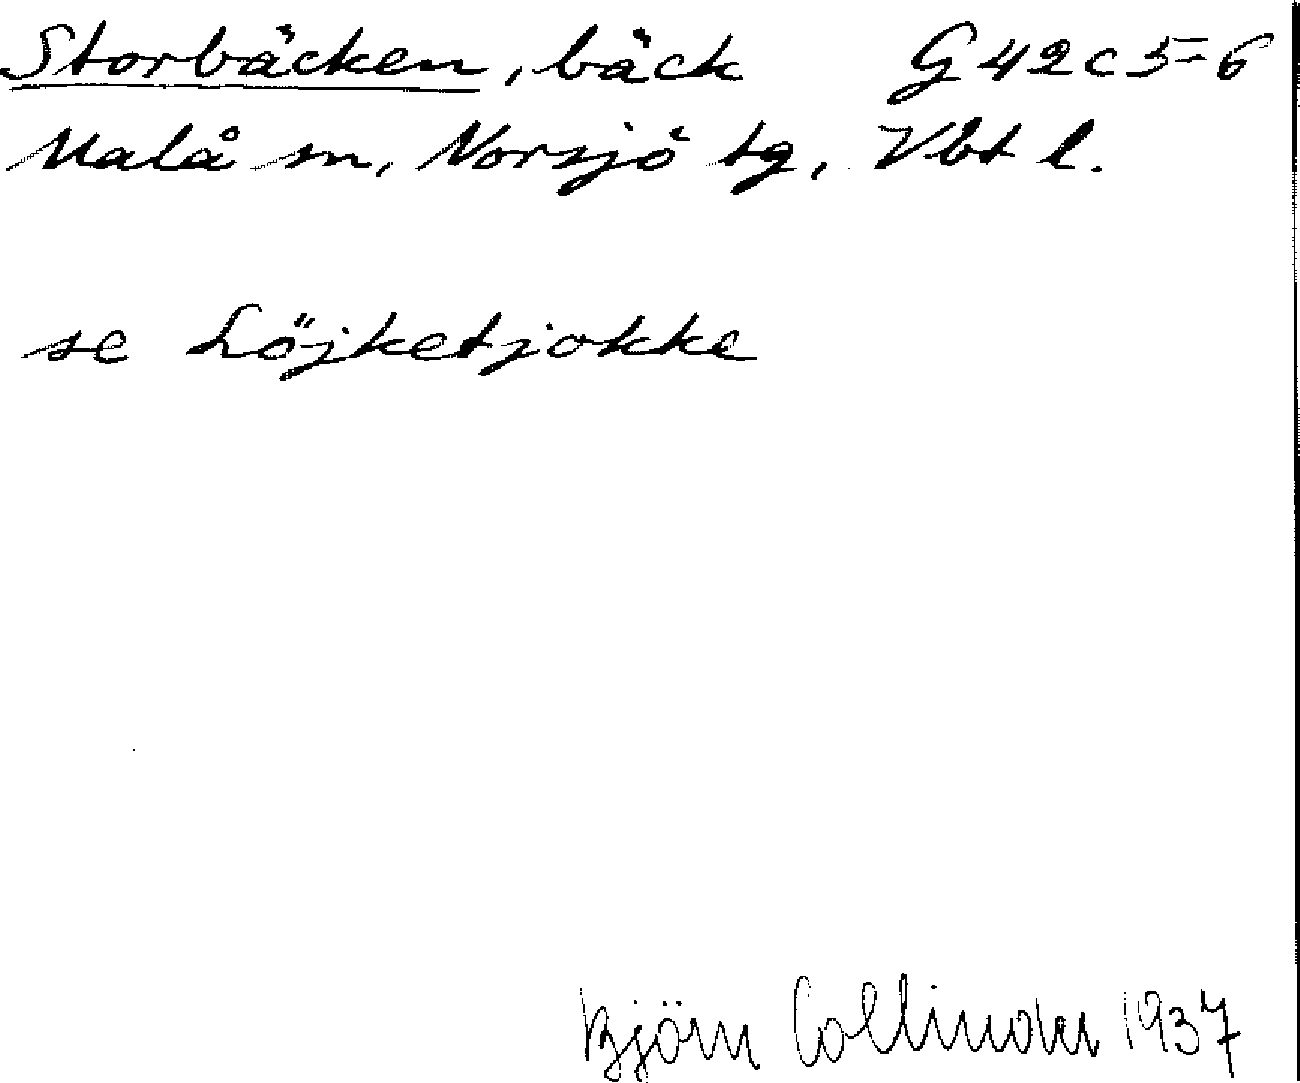 Storbäcken, bäck G42c5-6
Malå sn, Norsjö tg, Vbt l.
se Löjketjokke
Björn Collinder 1937